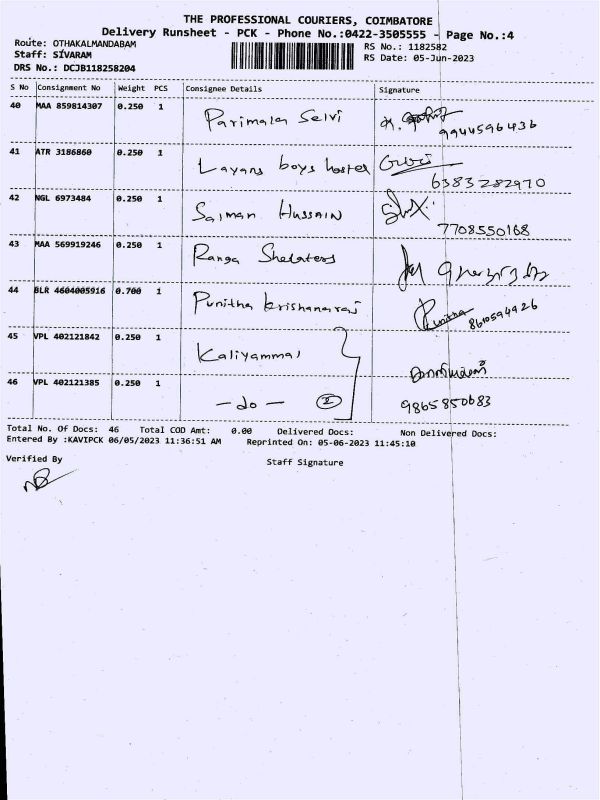 THE PROFESSIONAL COURIERS, COIMBATORE
Delivery Runsheet - PCK - Phone No.:0422-3505555 - Page No.:4
Route: OTHAKALMANDABAM
RS No.: 1182582
Staff: SIVARAM
RS Date: 05-Jun-2023
DRS No.: DCJB118258204
S No Consignment No Weight PCS Consignee Details Signature
40 MAA 859814307 0.250 1 Parimala Selvi
9944596436
41 ATR 3186860 0.250 1 Layans boys hostel
6383282970
42 NGL 6973484 0.250 1 Salman Hussain
7708550168
43 MAA 569919246 0.250 1 Ranga Shelaters
44 BLR 4604005916 0.700 1 Punitha krishanaraj Punitha 8610594926
45 VPL 402121842 0.250 1 Kaliyammal
46 VPL 402121385 0.250 1 -do- 2
9865850683
Total No. Of Docs: 46 Total COD Amt: 0.00 Delivered Docs: Non Delivered Docs:
Entered By :KAVIPCK 06/05/2023 11:36:51 AM Reprinted On: 05-06-2023 11:45:10
Verified By Staff Signature